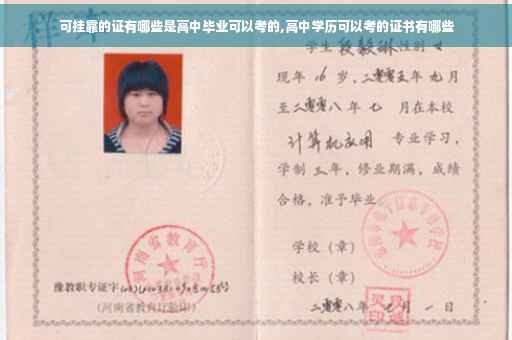 可挂靠的证有哪些是高中毕业可以考的,高中学历可以考的证书有哪些
学生 性别 女
现年 16 岁,二零零五年 九月
至二零零八年 七 月在本校
计算机应用 专业学习,
学制 三年,修业期满,成绩
合格,准予毕业
学校(章)
校长(章)
二零零八年 七 月 一 日
河南省教育厅
豫教职专证字
(河南省教育厅验印)